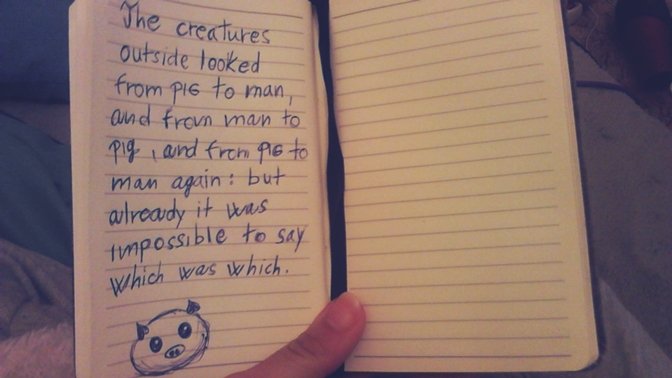 The creatures
outside looked
from PIG to man,
and from man to
pig, and from PIG to
man again: but
already it was
impossible to say
which was which.